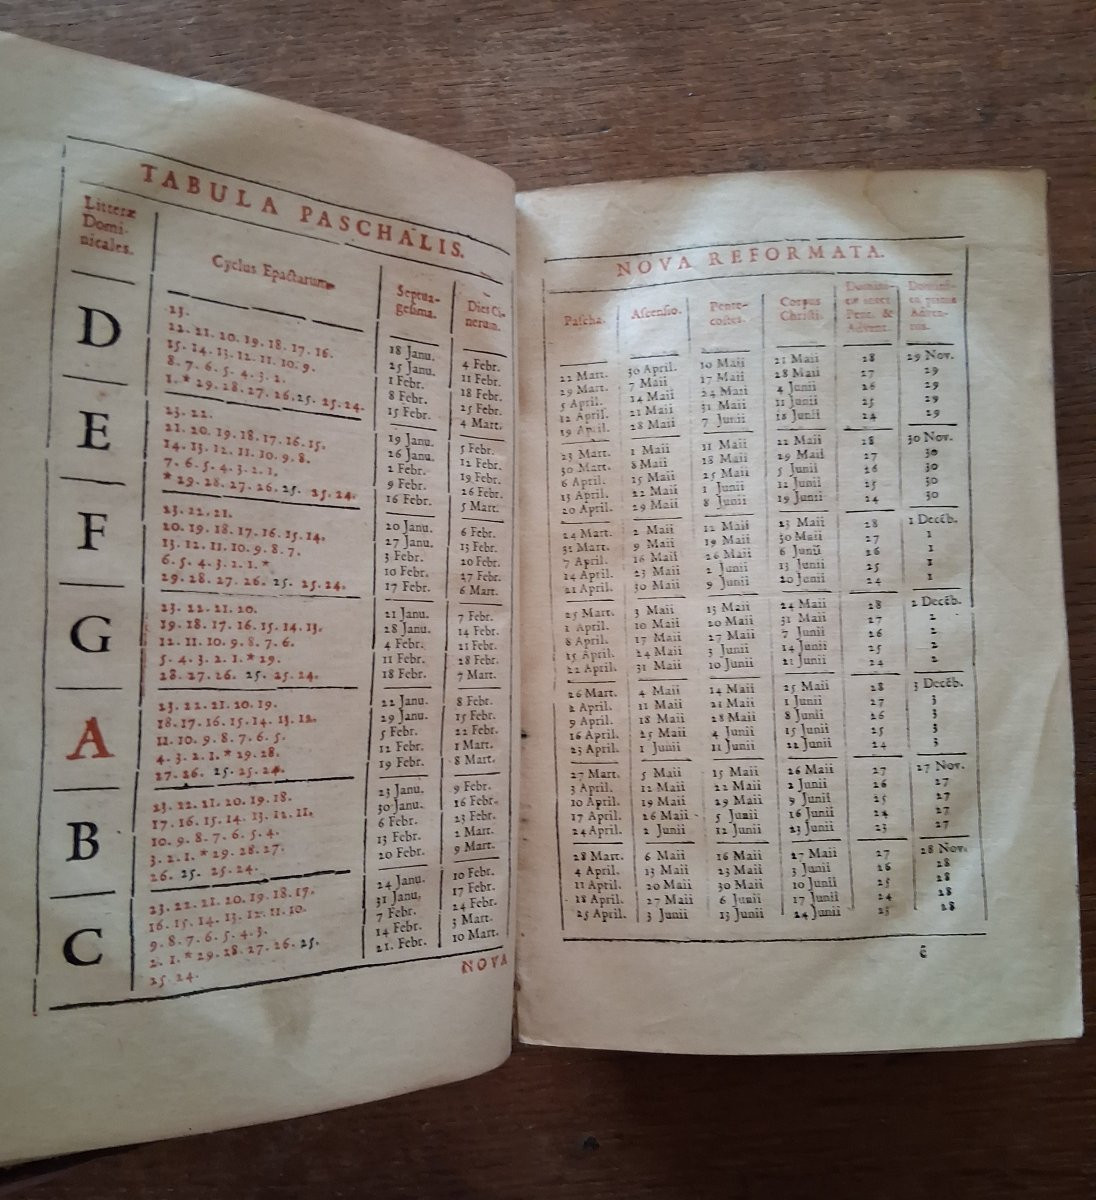 TABULA PASCHALIS.
Litteræ Domi- nicales. Cyclus Epactarum Septua- gesima. Dies Ci- nerum.
D
23. 18 Janu. 4 Febr.
22. 21. 20. 19. 18. 17. 16. 25 Janu. 11 Febr.
15. 14. 13. 12. 11. 10. 9. 1 Febr. 18 Febr.
8. 7. 6. 5. 4. 3. 2. 8 Febr. 25 Febr.
1. * 29. 28. 27. 26. 25. 25. 24. 15 Febr. 4 Mart.
E
23. 22. 19 Janu. 5 Febr.
21. 20. 19. 18. 17. 16. 15. 26 Janu. 12 Febr.
14. 13. 12. 11. 10. 9. 8. 2 Febr. 19 Febr.
7. 6. 5. 4. 3. 2. 1. 9 Febr. 26 Febr.
* 29. 28. 27. 26. 25. 25. 24. 16 Febr. 5 Mart.
F
23. 22. 21. 20 Janu. 6 Febr.
20. 19. 18. 17. 16. 15. 14. 27 Janu. 13 Febr.
13. 12. 11. 10. 9. 8. 7. 3 Febr. 20 Febr.
6. 5. 4. 3. 2. 1. * 10 Febr. 27 Febr.
29. 28. 27. 26. 25. 25. 24. 17 Febr. 6 Mart.
G
23. 22. 21. 20. 21 Janu. 7 Febr.
19. 18. 17. 16. 15. 14. 13. 28 Janu. 14 Febr.
12. 11. 10. 9. 8. 7. 6. 4 Febr. 21 Febr.
5. 4. 3. 2. 1. * 29. 11 Febr. 28 Febr.
28. 27. 26. 25. 25. 24. 18 Febr. 7 Mart.
A
23. 22. 21. 20. 19. 22 Janu. 8 Febr.
18. 17. 16. 15. 14. 13. 12. 29 Janu. 15 Febr.
11. 10. 9. 8. 7. 6. 5. 5 Febr. 22 Febr.
4. 3. 2. 1. * 29. 28. 12 Febr. 1 Mart.
27. 26. 25. 25. 24. 19 Febr. 8 Mart.
B
23. 22. 21. 20. 19. 18. 23 Janu. 9 Febr.
17. 16. 15. 14. 13. 12. 11. 30 Janu. 16 Febr.
10. 9. 8. 7. 6. 5. 4. 6 Febr. 23 Febr.
3. 2. 1. * 29. 28. 27. 13 Febr. 2 Mart.
26. 25. 25. 24. 20 Febr. 9 Mart.
C
23. 22. 21. 20. 19. 18. 17. 24 Janu. 10 Febr.
16. 15. 14. 13. 12. 11. 10. 31 Janu. 17 Febr.
9. 8. 7. 6. 5. 4. 3. 7 Febr. 24 Febr.
2. 1. * 29. 28. 27. 26. 25. 14 Febr. 3 Mart.
25. 24. 21. Febr. 10 Mart.
NOVA
NOVA REFORMATA.
Pascha. Ascensio. Pente- costes. Corpus Christi. Pent. & Advent.
22 Mart. 30 April. 10 Maii 21 Maii 28 29 Nov.
29 Mart. 7 Maii 17 Maii 28 Maii 27 29
5 April. 14 Maii 24 Maii 4 Junii 26 29
12 April. 21 Maii 31 Maii 11 Junii 25 29
19 April. 28 Maii 7 Junii 18 Junii 24 29
23 Mart. 1 Maii 11 Maii 22 Maii 28 30 Nov.
30 Mart. 8 Maii 18 Maii 29 Maii 27 30
6 April. 15 Maii 25 Maii 5 Junii 26 30
13 April. 22 Maii 1 Junii 12 Junii 25 30
20 April. 29 Maii 8 Junii 19 Junii 24 30
24 Mart. 2 Maii 12 Maii 23 Maii 28 1 Decēb.
31 Mart. 9 Maii 19 Maii 30 Maii 27 1
7 April. 16 Maii 26 Maii 6 Junii 26 1
14 April. 23 Maii 2 Junii 13 Junii 25 1
21 April. 30 Maii 9 Junii 20 Junii 24 1
25 Mart. 3 Maii 13 Maii 24 Maii 28 2 Decēb.
1 April. 10 Maii 20 Maii 31 Maii 27 2
8 April. 17 Maii 27 Maii 7 Junii 26 2
15 April. 24 Maii 3 Junii 14 Junii 25 2
22 April. 31 Maii 10 Junii 21 Junii 24 2
26 Mart. 4 Maii 14 Maii 25 Maii 28 3 Decēb.
2 April. 11 Maii 21 Maii 1 Junii 27 3
9 April. 18 Maii 28 Maii 8 Junii 26 3
16 April. 25 Maii 4 Junii 15 Junii 25 3
23 April. 1 Junii 11 Junii 22 Junii 24 3
27 Mart. 5 Maii 15 Maii 26 Maii 27 27 Nov.
3 April. 12 Maii 22 Maii 2 Junii 26 27
10 April. 19 Maii 29 Maii 9 Junii 25 27
17 April. 26 Maii 5 Junii 16 Junii 24 27
24 April. 2 Junii 12 Junii 23 Junii 23 27
28 Mart. 6 Maii 16 Maii 27 Maii 27 28 Nov.
4 April. 13 Maii 23 Maii 3 Junii 26 28
11 April. 20 Maii 30 Maii 10 Junii 25 28
18 April. 27 Maii 6 Junii 17 Junii 24 28
25 April. 3 Junii 13 Junii 24 Junii 28